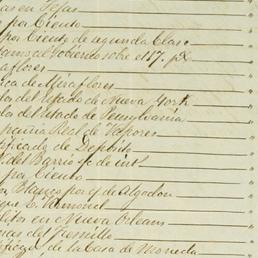 as en Tejas
por Ciento
por Ciento de segunda Clase
al Gobierno sobre el 17. p%
aflores
ca de Miraflores
del Estado de Nueva York
del Estado de Pensylvania
Real de Vapores
tificado de Deposito
del Barrio
por Ciento
Blancos por y de Algodon
que C. Almonel
letos en Nueva Orleans
nas del Fresnillo
de la Casa de Moneda